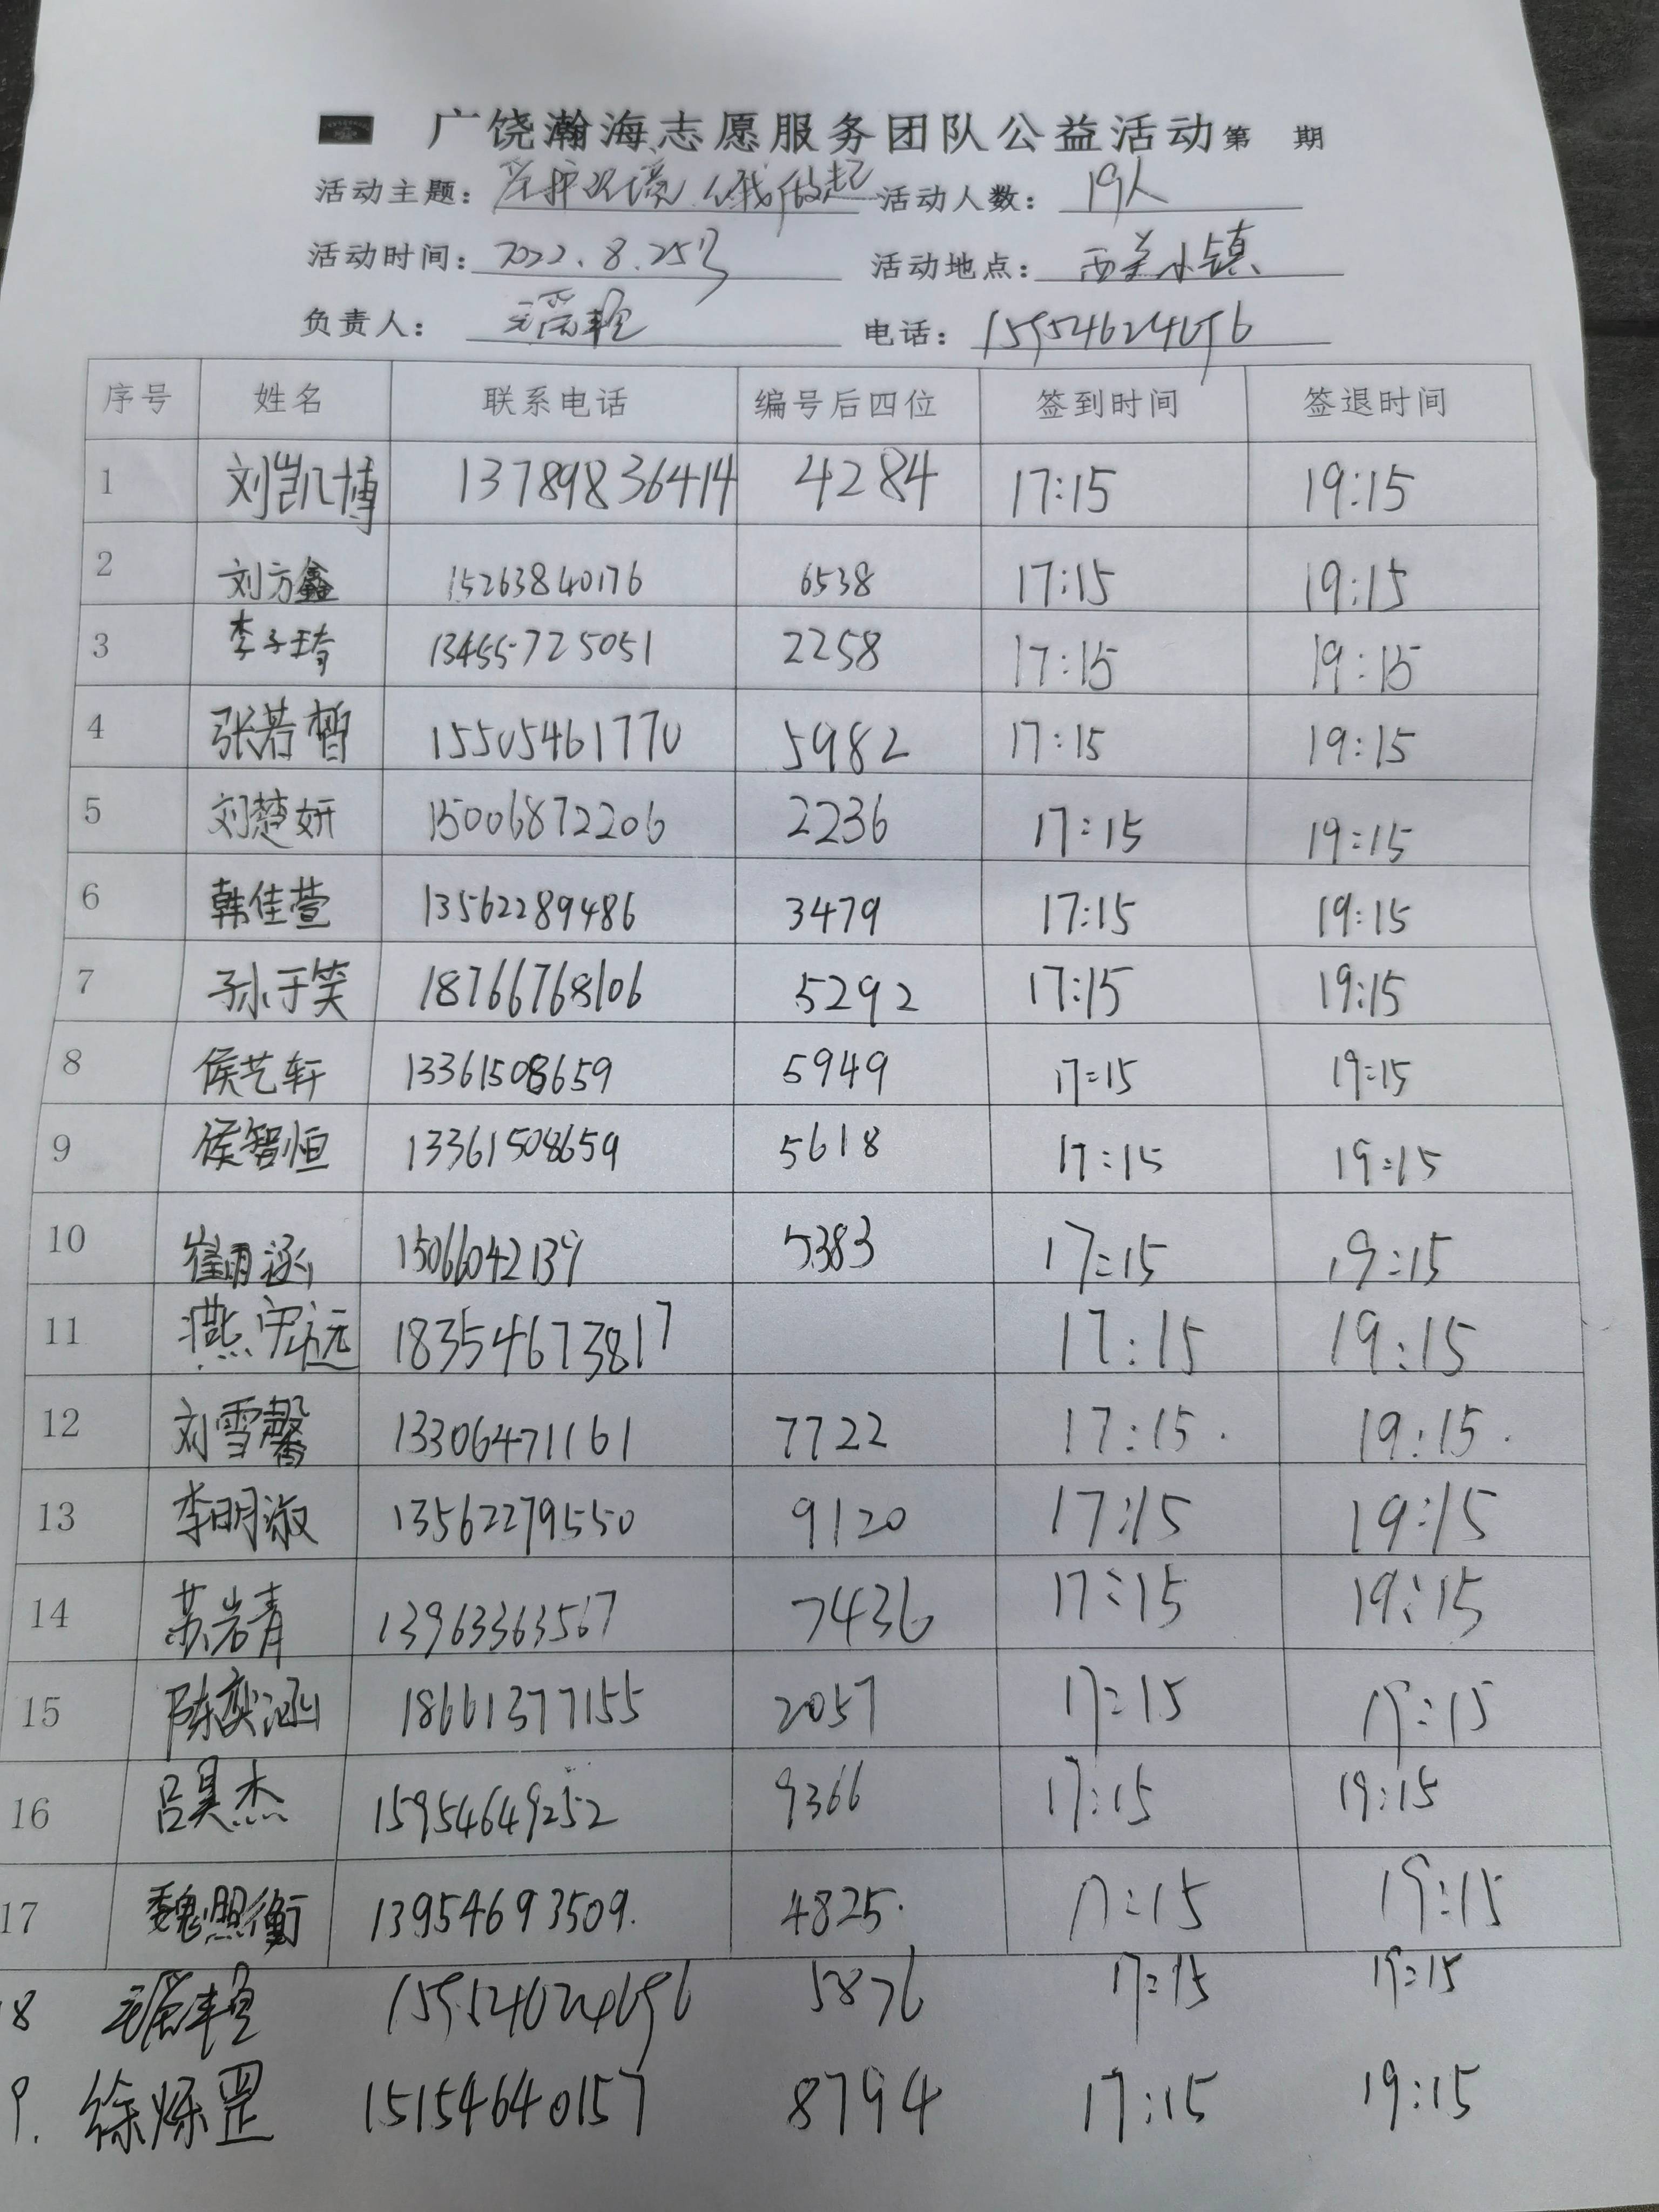 广饶瀚海志愿服务团队公益活动第 期
活动主题: 爱护环境 从我做起 活动人数: 19人
活动时间: 2022.8.25号 活动地点: 西关小镇
负责人: 电话: 15954624696
序号 姓名 联系电话 编号后四位 签到时间 签退时间
1 刘凯博 13789836414 4284 17:15 19:15
2 刘方鑫 15263840176 6538 17:15 19:15
3 李子琦 13455725051 2258 17:15 19:15
4 张若晳 15505461770 5982 17:15 19:15
5 刘楚妍 15006872206 2236 17:15 19:15
6 韩佳萱 13562289486 3479 17:15 19:15
7 孙于笑 18766768106 5292 17:15 19:15
8 侯艺轩 13361508659 5949 17:15 19:15
9 侯智恒 13361508659 5618 17:15 19:15
10 崔明涵 15066042139 5383 17:15 19:15
11 燕守远 18354673817 17:15 19:15
12 刘雪馨 13306471161 7722 17:15. 19:15.
13 李明淑 13562279550 9120 17:15 19:15
14 苏岩青 13963363567 7436 17:15 19:15
15 陈奕涵 18661377155 2057 17:15 19:15
16 吕昊杰 15954649252 9366 17:15 19:15
17 魏照衡 13954693509. 4825. 17:15 19:15
8 15954624696 5876 17:15 19:15
9. 徐烁罡 15154640157 8794 17:15 19:15